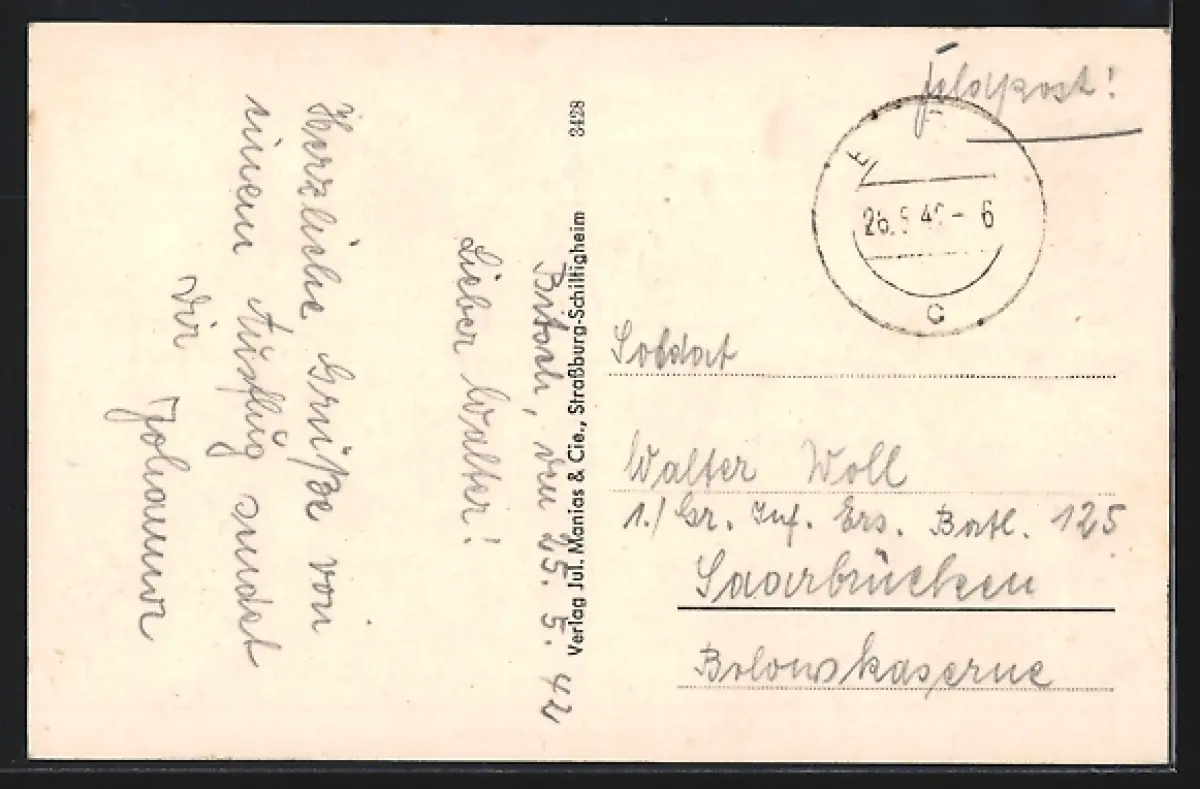 Bitsch, den 25. 5. 42
Lieber Walter!
Herzliche Grüße von
einem Ausflug sendet
Dir
Johanna
Verlag Jul. Manias & Cie., Straßburg-Schiltigheim 3428
Feldpost!
26.5.42 - 6
c
Soldat
Walter Woll
1./ Gr. Inf. Ers. Batl. 125
Saarbrücken
Belowskaserne